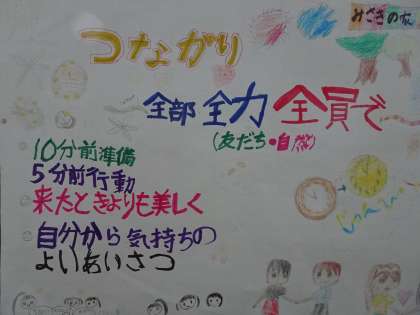 みさきの家
つながり
全部 全力 全員で
(友だち・自然)
10分前準備
5分前行動
来たときよりも美しく
自分から気持ちの
よいあいさつ